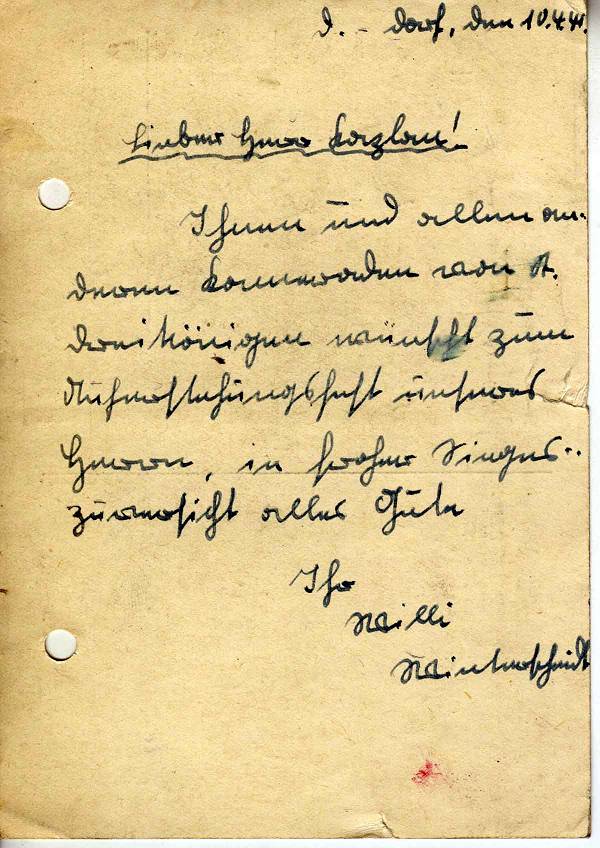 D.-dorf, den 10.4.41.
Lieber Herr Kaplan!
Ihnen und allen an-
deren Kameraden von St.
Dreikönigen wünscht zum
Auferstehungsfest unseres
Herrn, in froher Sieges-
zuversicht alles Gute
Ihr
Willi
Winterscheidt